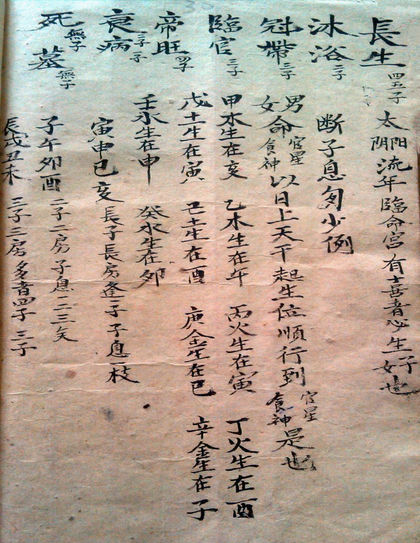 長生 四五子 太陽陰流年臨命宮有喜者必生子女也
沐浴 二子 断子息多少例
冠帶 三子 男女命官星食神以日上天干起生位順行到官星食神是也
臨官 三子 甲木生在亥 乙木生在午 丙火生在寅 丁火生在酉
帝旺 四子 戊土生在寅 己土生在酉 庚金生在巳 辛金生在子
壬水生在申 癸水生在卯
衰病 寅申巳亥 長子長房 子子息一枝
死 無子 墓 無子 子午卯酉 二子二房子息二三矣
辰戌丑未 三子三房多者四子三子